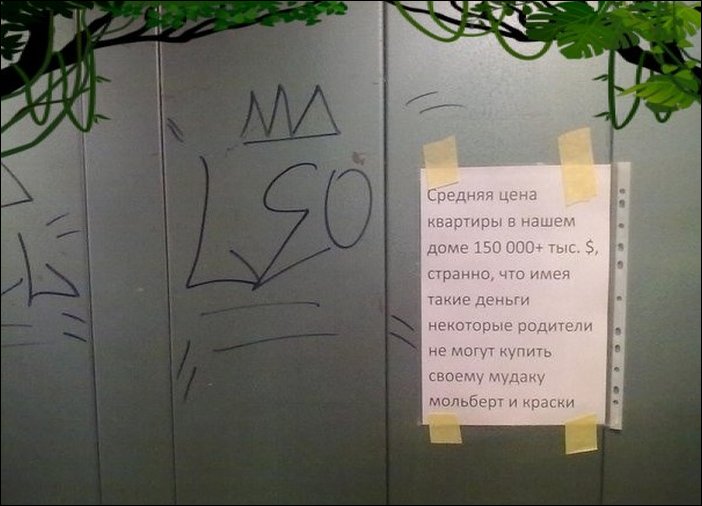 LEO
Средняя цена
квартиры в нашем
доме 150 000+ тыс. $,
странно, что имея
такие деньги
некоторые родители
не могут купить
своему мудаку
мольберт и краски